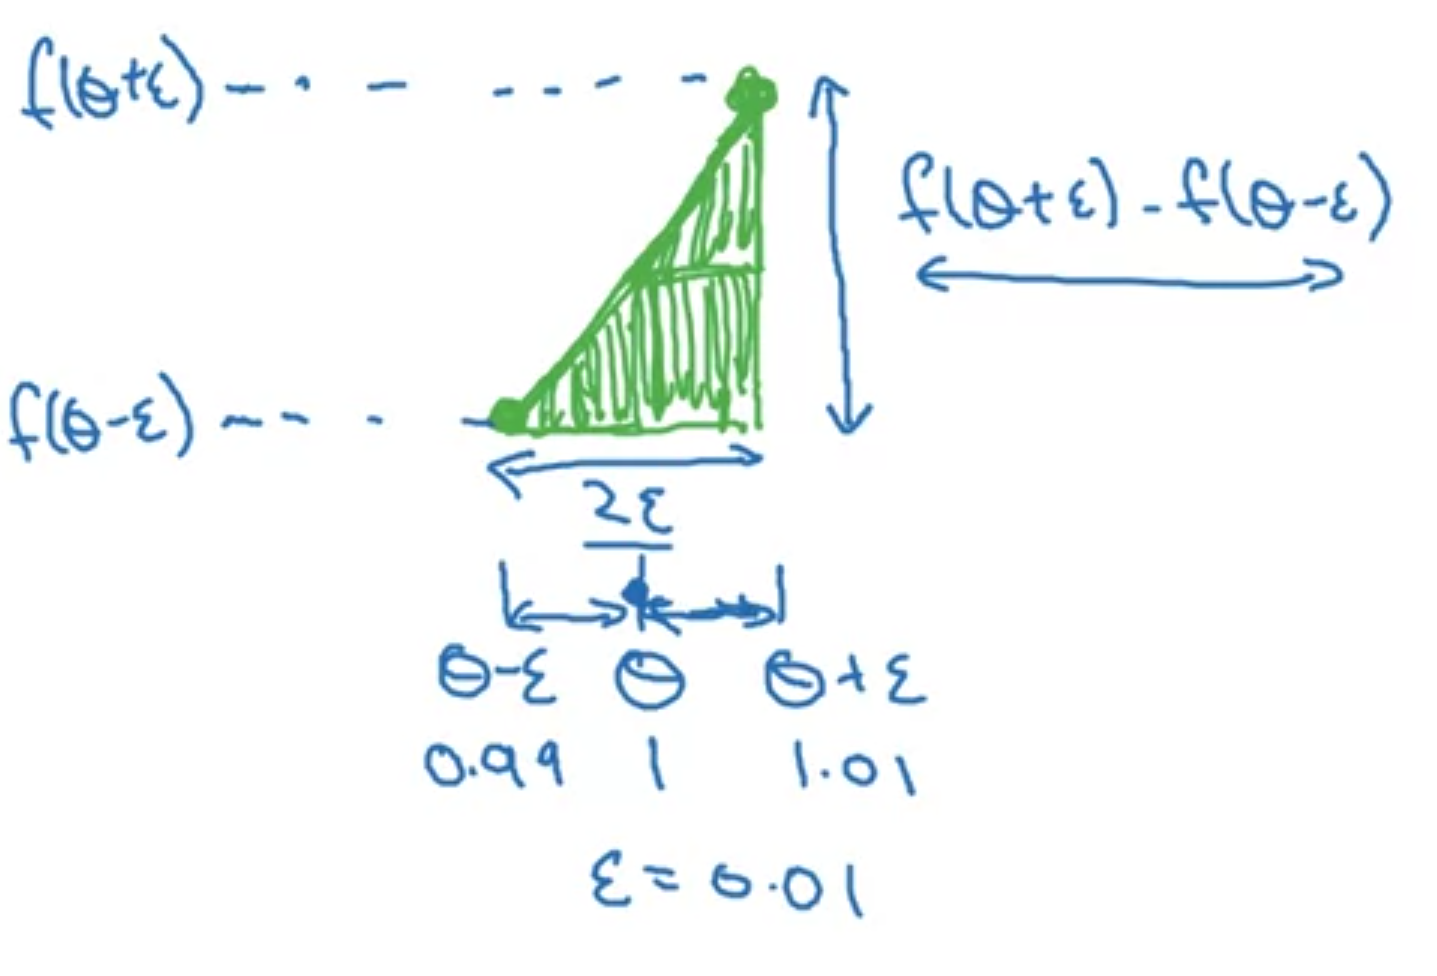 f(θ+ε)
f(θ+ε) - f(θ-ε)
f(θ-ε)
2ε
θ-ε θ θ+ε
0.99 1 1.01
ε = 0.01